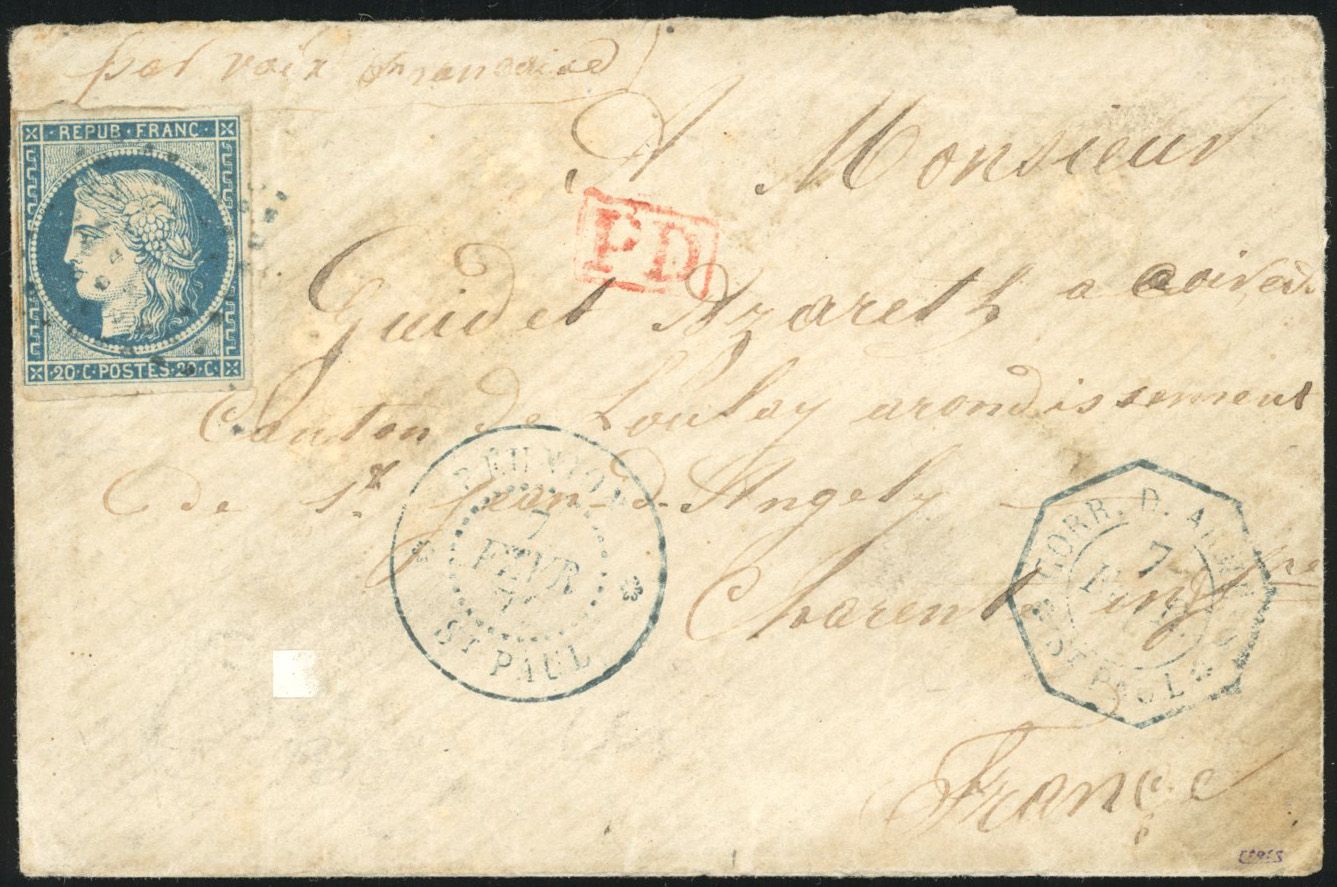 par voix francaise
REPUB · FRANC ·
20 · C · POSTES · 20 · C ·
A Monsieur
PD
Guidet Nzareth a Coivert
Canton de Loulay arondissement
de St Jean-d-Angely
Charent
France
RÉUNION
7
FEVR
ST PAUL
CORR. D. ARMÉES
7
ST PAUL
CÉRÈS